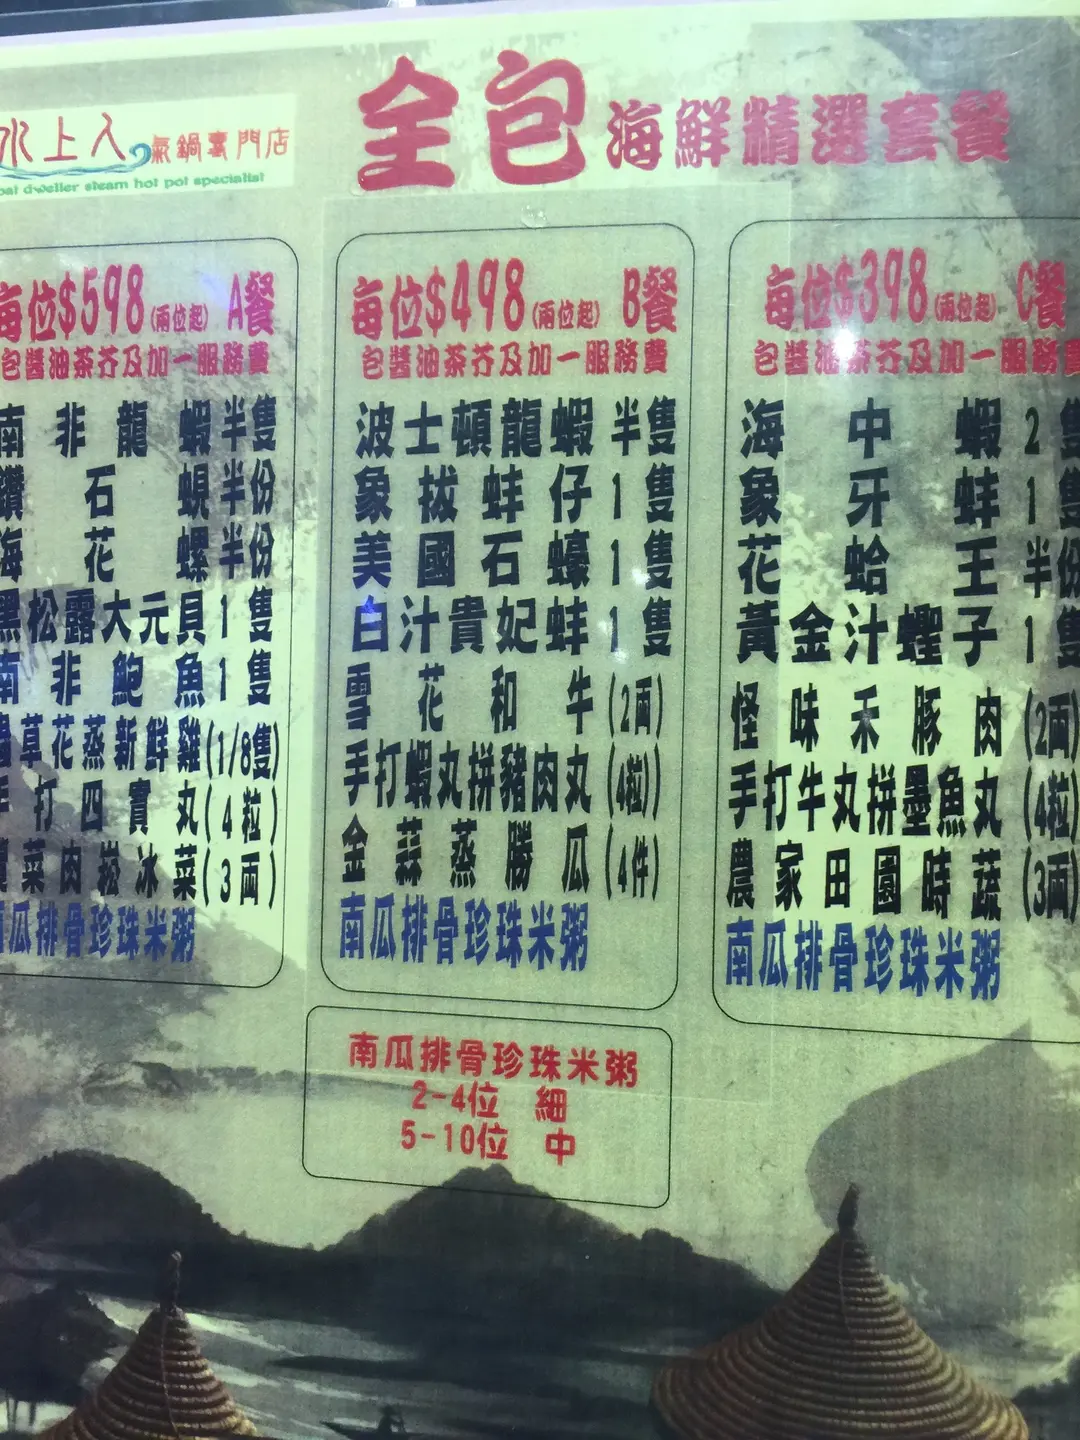 全包海鮮精選套餐
水上人 氣鍋專門店
dweller steam hot pot specialist
每位$598(兩位起) A餐
包醬油茶芥及加一服務費
南非龍蝦半隻
鑽石蜆半份
海花螺半份
黑松露大元貝1隻
南非鮑魚1隻
蟲草花蒸新鮮雞(1/8隻)
手打四寶丸(4粒)
菜肉崧冰菜(3兩)
南瓜排骨珍珠米粥
每位$498(兩位起) B餐
包醬油茶芥及加一服務費
波士頓龍蝦半隻
象拔蚌仔1隻
美國石蠔1隻
白汁貴妃蚌1隻
雪花和牛(2兩)
手打蝦丸拼豬肉丸(4粒)
金蒜蒸勝瓜(4件)
南瓜排骨珍珠米粥
每位$398(兩位起) C餐
包醬油茶芥及加一服務費
海中蝦2隻
象牙蚌1隻
花蛤王半份
黃金汁蟶子1隻
怪味禾豚肉(2兩)
手打牛丸拼墨魚丸(4粒)
農家田園時蔬(3兩)
南瓜排骨珍珠米粥
南瓜排骨珍珠米粥
2-4位 細
5-10位 中